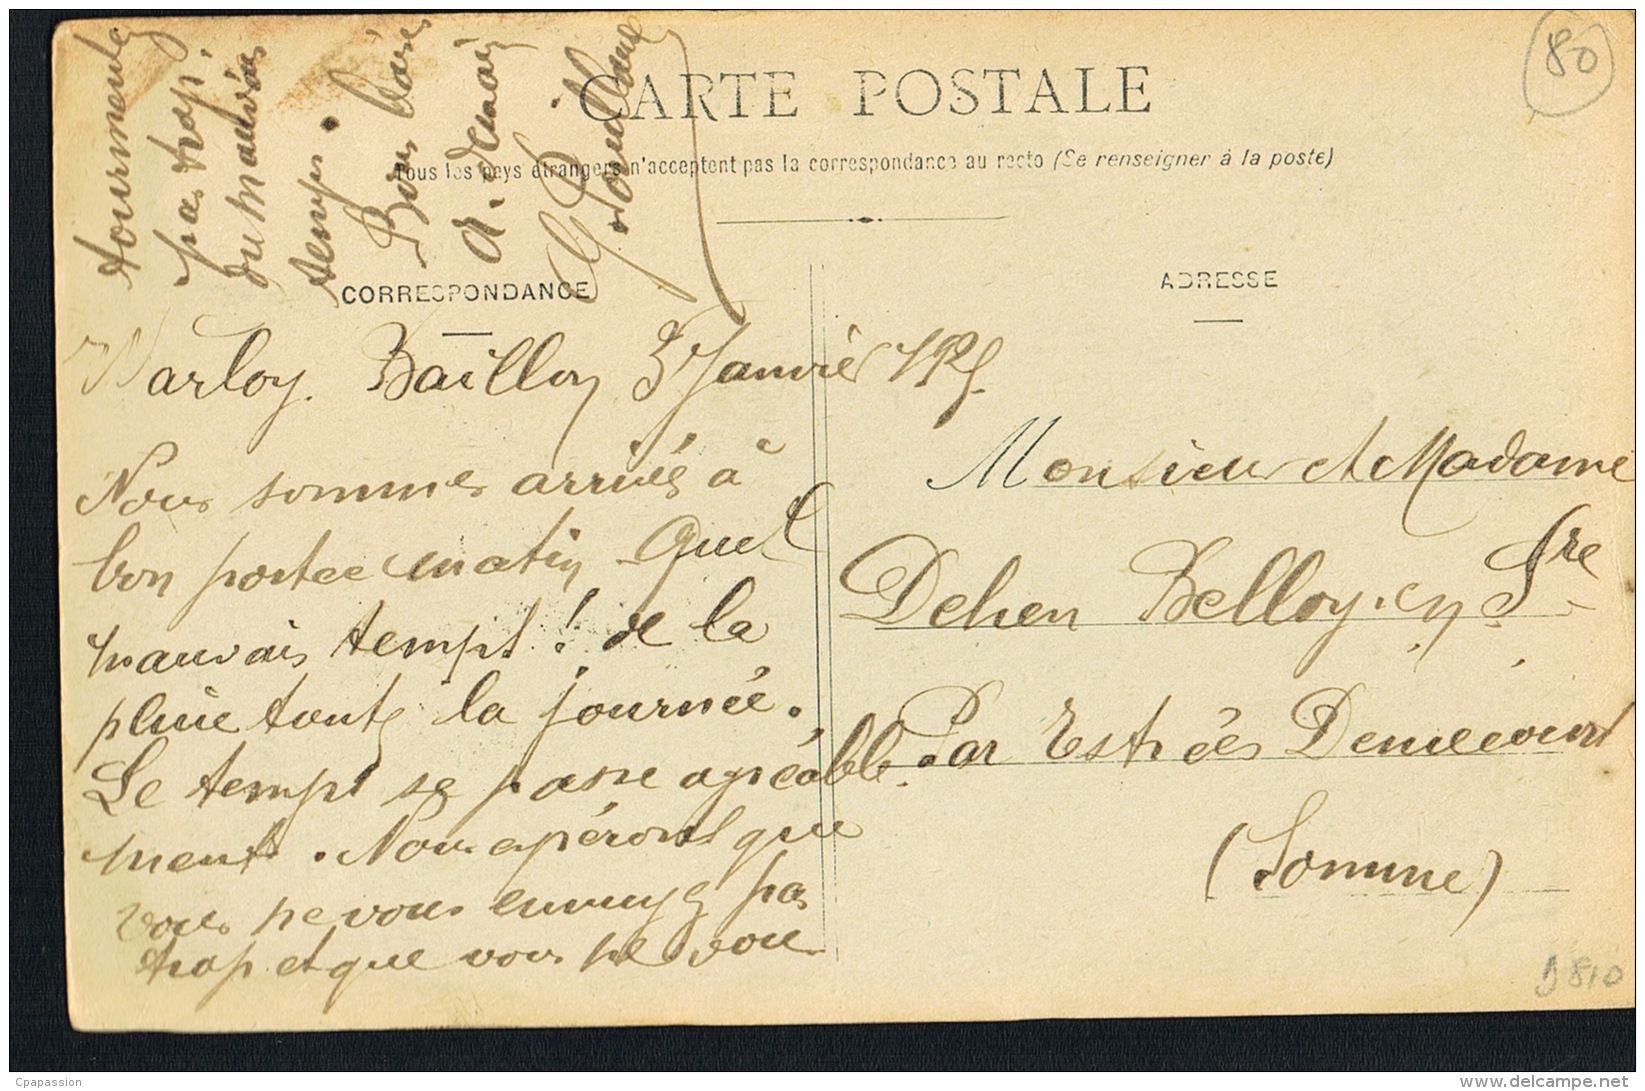 CARTE POSTALE
Tous les pays étrangers n'acceptent pas la correspondance au recto (Se renseigner à la poste)
CORRESPONDANCE
ADRESSE
80
Warloy. Baillon 3 Janvier
Nous sommes arrivés à
bon port ce matin Quel
mauvais tempt! de la
pluie toute la journée.
Le tempt se passe agréable
ment. Nous espéront que
vous ne vous ennuyez pas
trop et que vous ne vous
tourmentez
pas trop
du mauvais
temps.
Bons baisers
A. demain
Monsieur et Madame
Dehen Belloy. en Sre
Par Estrées Deniecourt
(Somme)
Cpapassion
www.delcampe.net